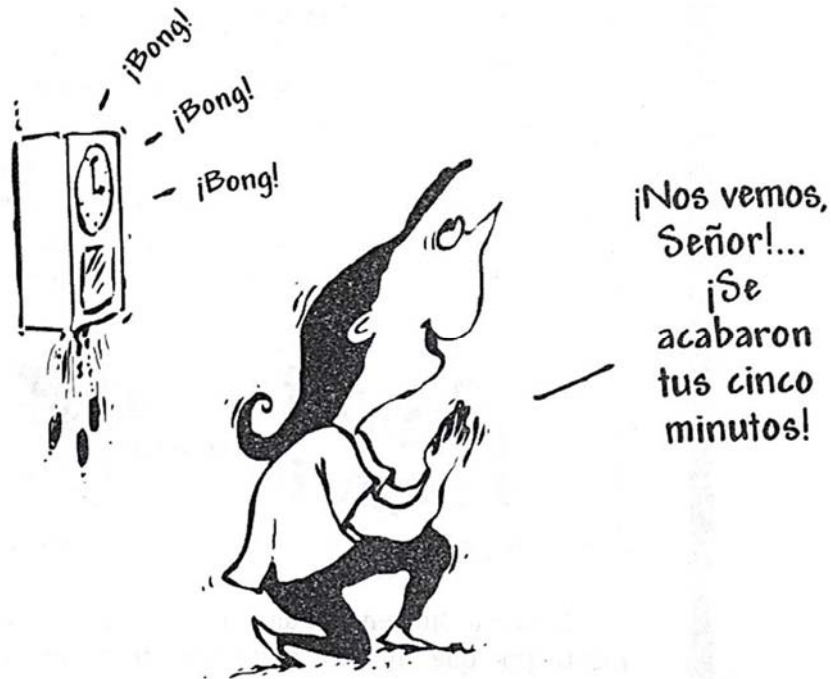 ¡Bong!
¡Bong!
¡Bong!
¡Nos vemos,
Señor!...
¡Se
acabaron
tus cinco
minutos!